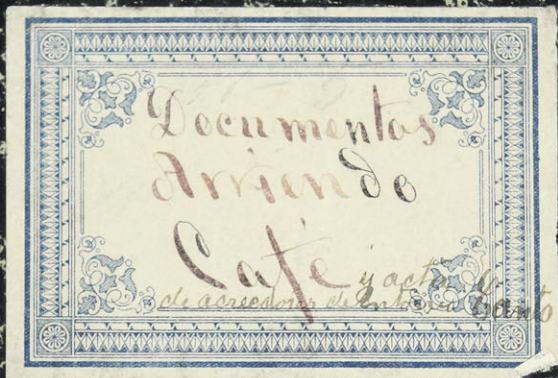 Documentos
Arriendo
Café y acta
de acreedores de Santo